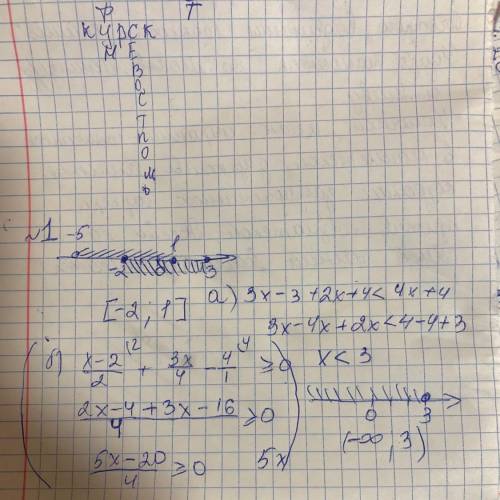 Р Т
КУРСК
Н Е
В
О
С
Т
П
О
М
Ь
№1 -5 1
-2 3
[-2; 1]
а) 3x-3+2x+4<4x+4
3x-4x+2x<4-4+3
x<3
0 3
(-∞, 3)
б) x-2/2 |2 + 3x/4 - 4/1 |4 ≥0
2x-4+3x-16/4 ≥0
5x-20/4 ≥0 5x